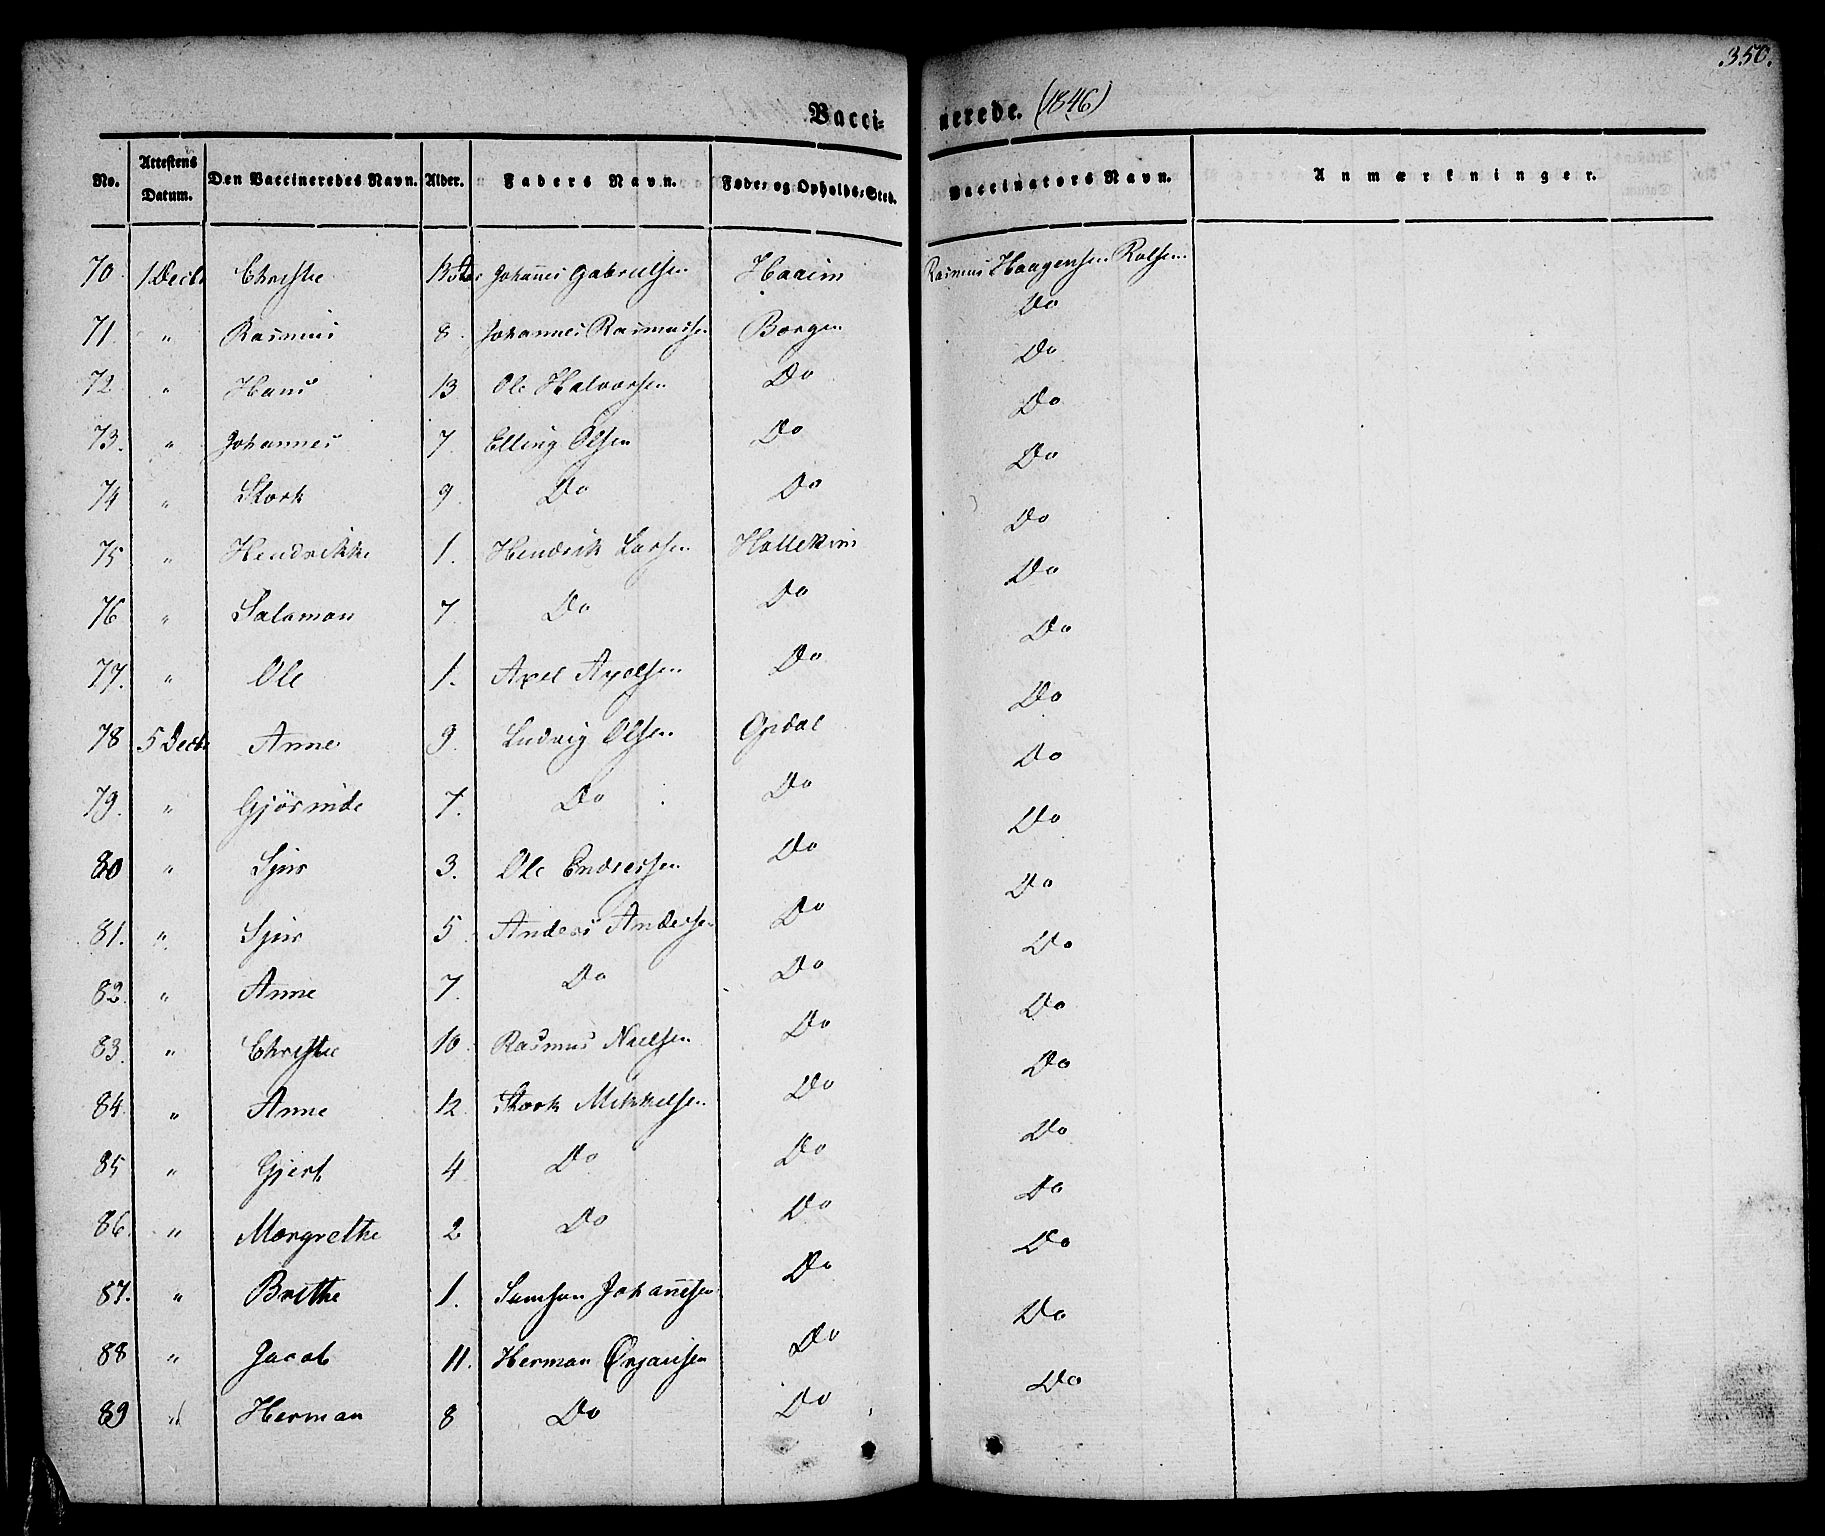 350.
Vaccinerede. (1846)
No. Attestens Datum. Den Vaccineredes Navn. Alder. Faders Navn. Føde- og Opholds-Sted. Vaccinators Navn. Anmærkninger.
70. 1 Decbr Christie Johannes Gabrielsen Haaeim Rasmus Haagensen Rolfsen
71. " Rasmus 8. Johannes Rasmussen Borgen Do
72. " Hans 13 Ole Halvorsen Do Do
73. " Johannes 7. Elling Olsen Do Do
74 " Stork 9. Do Do Do
75 " Hendrikke 1. Hendrik Larsen Hallekim Do
76 " Salamon 7. Do Do Do
77. " Ole 1. Axel Axelsen Do Do
78 5 Decbr Anne 9. Ludvig Olsen Opdal Do
79. " Gjørinde 7. Do Do Do
80 " Sjur 3. Ole Endresen Do Do
81. " Sjur 5. Anders Andersen Do Do
82. " Anne 7. Do Do Do
83. " Christie 10. Rasmus Nielsen Do Do
84. " Anne 12. Stork Mikkelsen Do Do
85 " Gjert 4 Do Do Do
86. " Margrethe 2 Do Do Do
87. " Brithe 1. Samson Johannesen Do Do
88 " Jacob 11. Herman Ørjansen Do Do
89 " Herman 8 Do Do Do